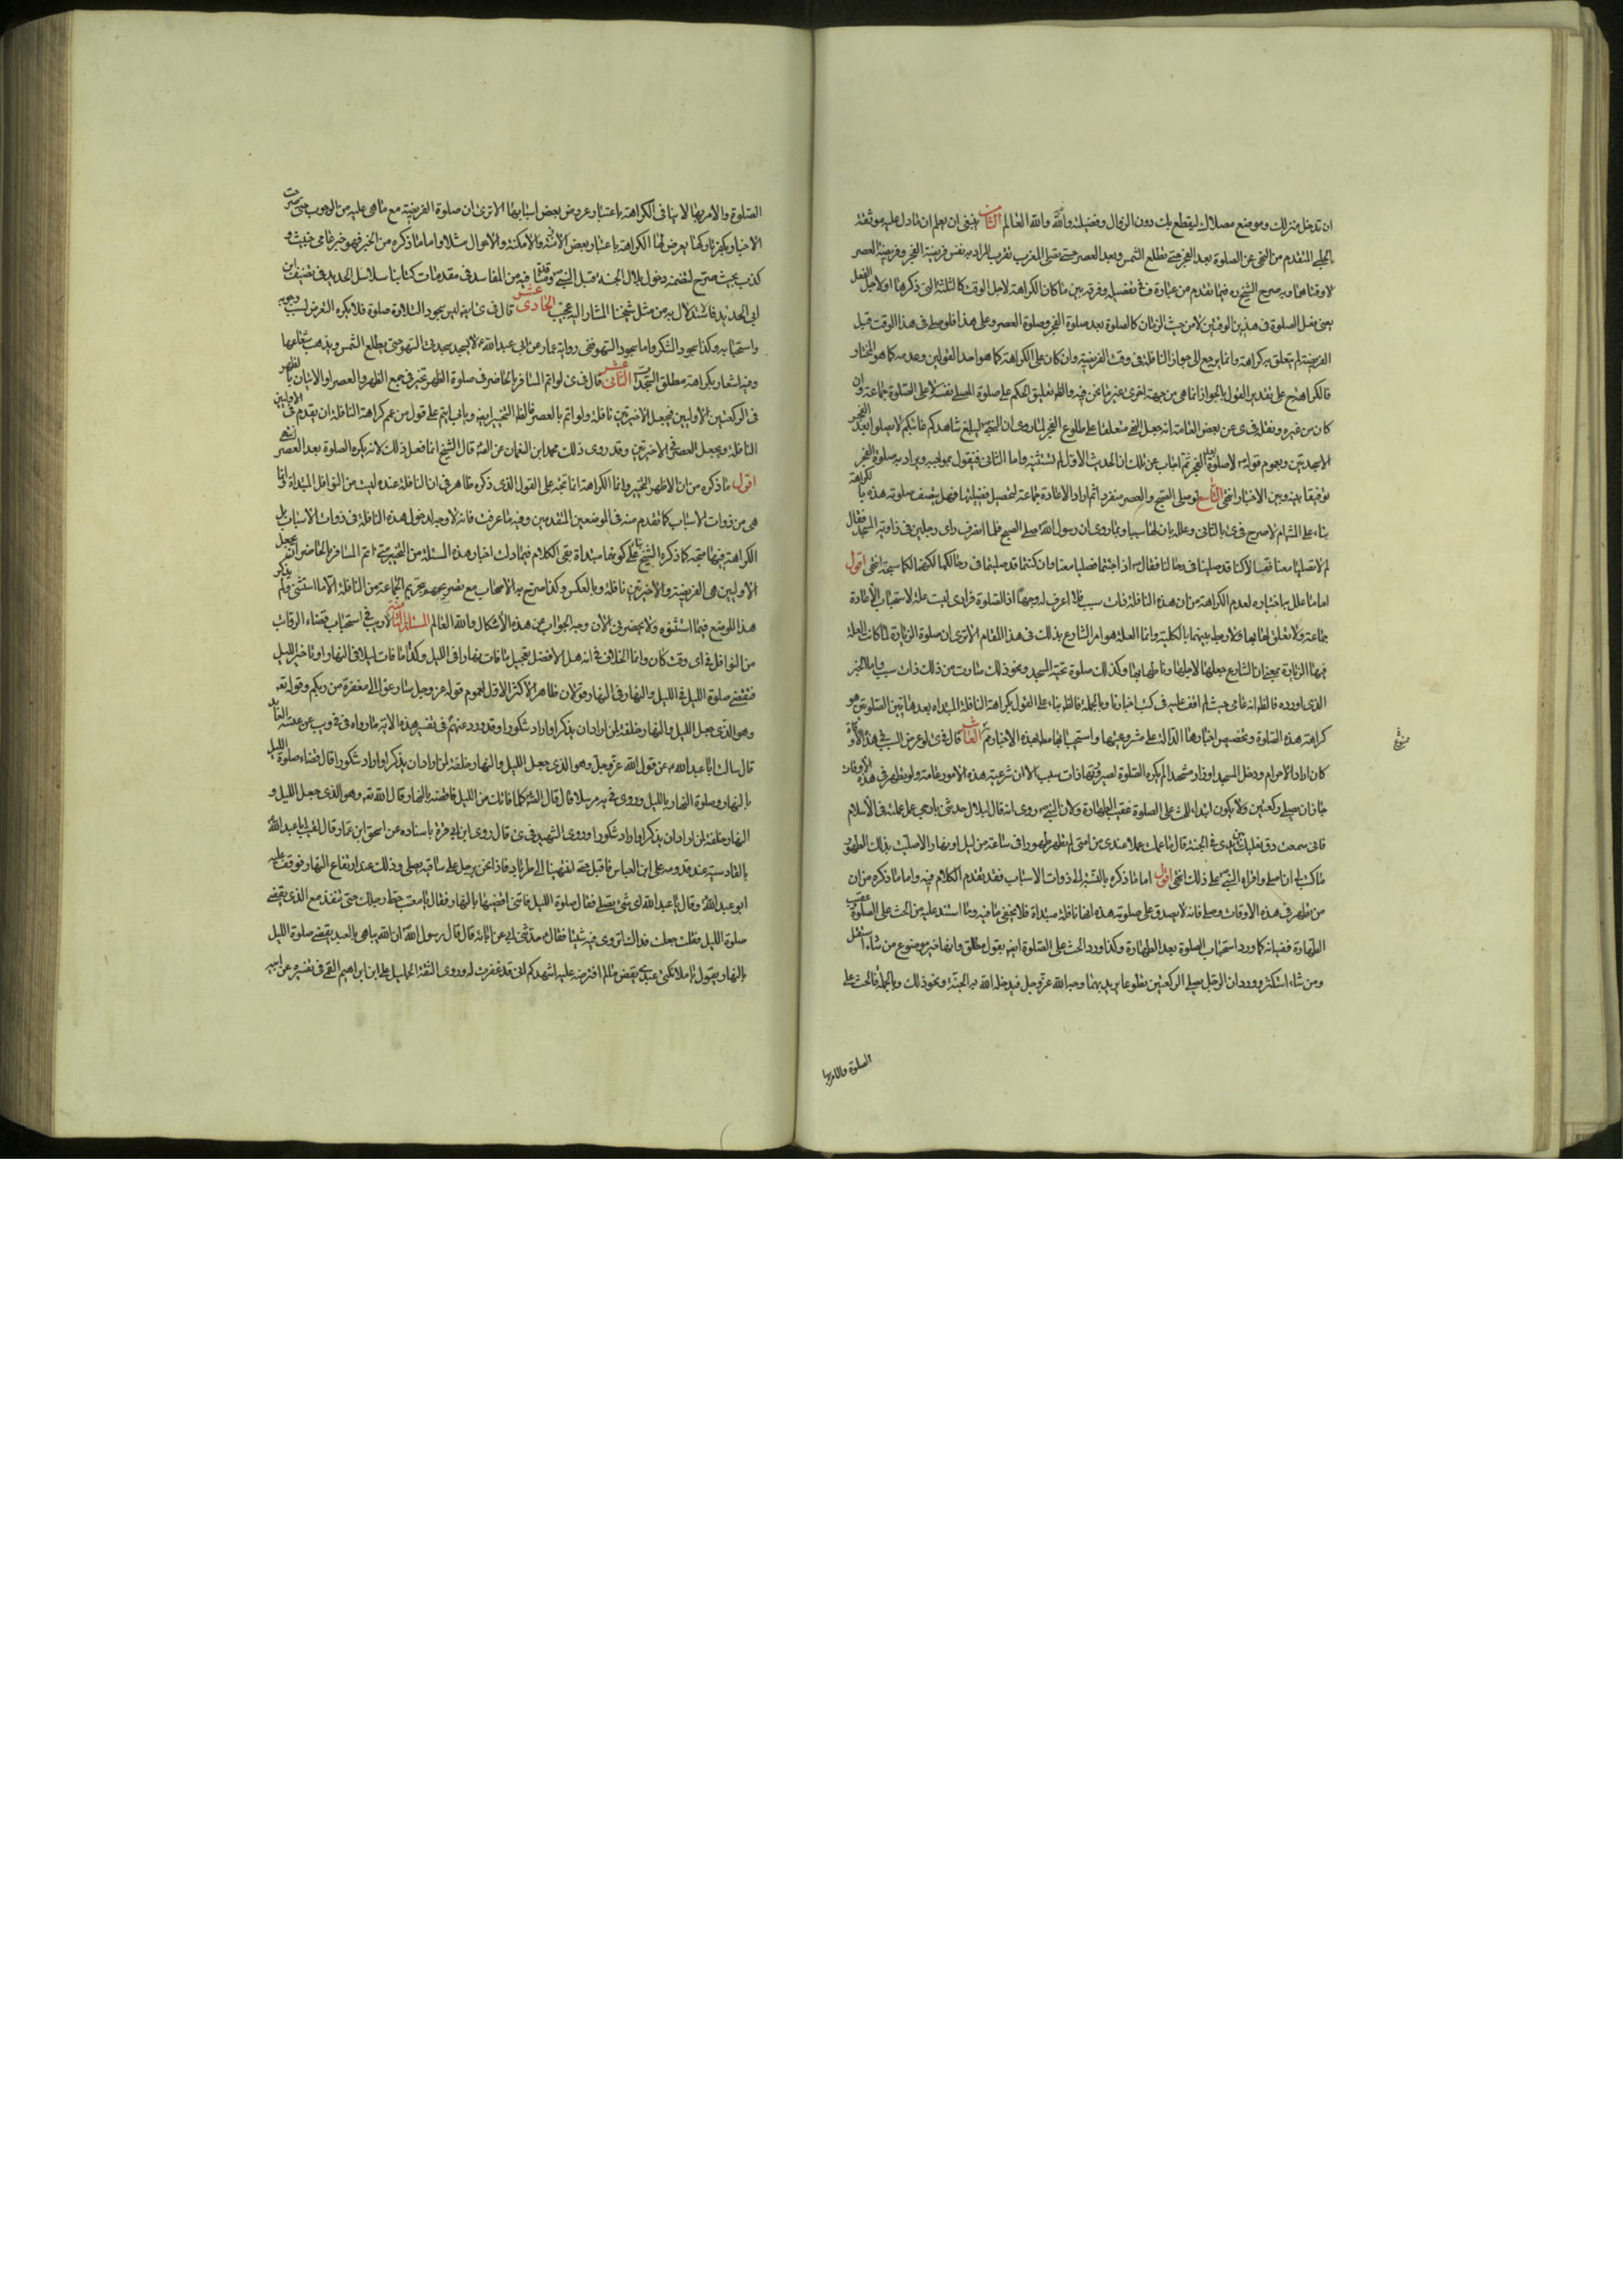 ان تدخل منزلك وموضع مصلاك ليقطع بك دون الزوال وفضيلته والله العالم الثامن ينبغي ان يعلم ان ما دل عليه موثقة
الحلبي المتقدم من النهي عن الصلوة بعد الفجر حتى تطلع الشمس وبعد العصر حتى تصلي المغرب نقرب المراد به نفس فريضة الفجر وفريضة العصر
لا وقتاهما وبه صرح الشيخ ره فيما تقدم من عبارة ف في تفصيله وفرقه بين ما كان الكراهة لاجل الوقت كالثلثة التي ذكرها او لاجل الفعل
يعني فعل الصلوة في هذين الوقتين لا من حيث الزمان كالصلوة بعد صلوة الفجر وصلوة العصر وعلى هذا فلو صلى في هذا الوقت قبل
الفريضة لم يتعلق به كراهة وانما يرجع الى جواز النافلة في وقت الفريضة وان كان على الكراهة كما هو احد القولين وعدمه كما هو المختار
فالكراهة ح على تقدير القول بالجواز انما هي من جهة اخرى غير ما نحن فيه والظ تعليق الحكم على صلوة المصلي نفسه لا على الصلوة جماعة وان
كان من غيره ونقل في ى عن بعض العامة انه جعل النهي متعلقا على طلوع الفجر لما روي ان النبي ليبلغ شاهدكم غائبكم لا يصلوا بعد الفجر
الا سجدتين وبعموم قوله لا صلوة بعد الفجر ثم اجاب عن ذلك ان الحديث الاول لم يستثنه واما الثاني فنقول بموجبه ويراد به صلوة الفجر
توفيقا بينه وبين الاخبار انتهى التاسع لو صلى الصبح والعصر منفردا ثم اراد الاعادة جماعة لتحصيل فضيلتها فهل يتصف صلوته هذه بالكراهة
بناء على المشهور لا صرح في ى بالثاني وعلله بان لها سببا وبما روي ان رسول الله صلى الصبح فلما انصرف رأى رجلين في زاوية المسجد فقال
لم لا تصليا معنا فقالا كنا قد صلينا في رحالنا فقال اذا جئتما فصليا معنا وان كنتما قد صليتما في رحالكما لكونها لكما سبحة انتهى اقول
اما ما علل به اختياره لعدم الكراهة من ان هذه النافلة ذات سبب فلا اعرف له وجها اذ الصلوة فرادى ليست علة لاستحباب الاعادة
جماعة ولا تعلق لها بها ولا ربط بينهما بالكلية وانما العلة هو امر الشارع بذلك في هذا المقام الا ترى ان صلوة الزيارة لما كانت العلة
فيها الزيارة بمعنى ان الشارع جعلها لاجلها وناطها بها وكذلك صلوة تحية المسجد ونحو ذلك صارت من ذلك ذات سبب واما الخبر
الذي اورده فالظ انه عامي حيث لم اقف عليه في كتب اخبارنا وبالجملة فالظ بناء على القول بكراهة النافلة المبتداه بعد هاتين الصلوتين هو
كراهة هذه الصلوة وتخصيص اخبارها الدالة على مشروعيتها واستحبابها بهذه الاخبار ثم العاشر قال في ى لو عرض السبب في هذه الاوقات
كان اراد الاحرام ودخل المسجد او زار مشهدا لم يكره الصلوة لصيرورتها ذات سبب لان شرعية هذه الامور عامة ولو تطهر في هذه الاوقات
جاز ان يصلي ركعتين ولا يكون ابتداء للحث على الصلوة عقيب الطهارة ولان النبي روي انه قال لبلال حدثني بارجى عمل عملته في الاسلام
فاني سمعت دق نعليك بين يدي في الجنة قال ما عملت عملا عندي من انني لم اتطهر طهورا في ساعة من ليل او نهار الا صليت بذلك الطهور
ما كتب لي ان اصلي واقره النبي على ذلك انتهى اقول اما ما ذكره بالنسبة الى ذوات الاسباب فقد تقدم الكلام فيه واما ما ذكره من ان
من تطهر في هذه الاوقات وصلى فانه لا يصدق على صلوته هذه انها نافلة مبتداة فلا يخفى ما فيه وما استند عليه من الحث على الصلوة عقيب
الطهارة ففيه انه كما ورد استحباب الصلوة بعد الطهارة وكذا ورد الحث على الصلوة ايض بقول مطلق وانها خير موضوع من شاء استقل
ومن شاء استكثر وورد ان الرجل يصلي الركعتين تطوعا يريد بهما وجه الله عز وجل فيدخله الله به الجنة ونحو ذلك وبالجملة فالحث على
الصلوة والامر بها
الصلوة والامر بها لا ينافي الكراهة باعتبار عروض بعض اسبابها الا ترى ان صلوة الفريضة مع ما هي عليه من الوجوب حتى صرحت
الاخبار بكفر تاركها يعرض لها الكراهة باعتبار بعض الازمنة والامكنة والاحوال مثلا واما ما ذكره من الخبر فهو خبر عامي خبيث و
كذب بحت صريح لتضمنه دخول بلال الجنة قبل النبي وقد بينا ما فيه من المفاسد في مقدمات كتابنا سلاسل الحديد في تقييد ابن
ابي الحديد فاستدلال به من مثل شيخنا المشار اليه عجيب الحادي عشر قال في ى ايض ليس سجود التلاوة صلوة فلا يكره التعرض لسبب وجوبه
واستحبابه وكذا سجود الشكر واما سجود السهو ففي رواية عمار عن ابي عبد الله لا يسجد سجدتي السهو حتى يطلع الشمس ويذهب شعاعها
وفيه اشعار بكراهة مطلق السجدات الثاني عشر قال في ى لو ائتم المسافر بالحاضر في صلوة الظهر تخير في جمع الظهر والعصر او الاتيان بالظهر
في الركعتين الاوليين فيجعل الاخيرتين نافلة ولو ائتم بالعصر فالظ التخيير ايض وياتي ايتم على قول من عمم كراهة النافلة ان يقدم في الاوليين
النافلة ويجعل العصر في الاخيرتين وقد روى ذلك محمد ابن النعمان عن الص قال الشيخ انما فعل ذلك لانه يكره الصلوة بعد العصر انتهى
اقول ما ذكره من ان الاظهر التخيير وانما الكراهة انما تجه على القول الذي ذكره ظاهر في ان النافلة عنده ليست من النوافل المبتداة وانما
هي من ذوات الاسباب كما تقدم منه في الموضعين المتقدمين وفيه ما عرفت فانه لا وجه لدخول هذه النافلة في ذوات الاسباب بل
الكراهة فيها متجه كما ذكره الشيخ بناء على كونها مبتداة بقي الكلام فيما دلت اخبار هذه المسئلة من التخيير متى ائتم المسافر بالحاضر ان يجعل
الاوليين هي الفريضة والاخيرتين نافلة وبالعكس وكذا صرح به الاصحاب مع تصريحهم بتحريم الجماعة من النافلة الا ما استثني ولم يذكر
هذا الموضع فيما استثنوه ولا يحضرني الان وجه الجواب عن هذه الاشكال والله العالم المسئلة الثالثة لا ريب في استحباب قضاء الرواتب
من النوافل في اي وقت كان وانما الخلاف في انه هل الافضل تعجيل ما فات نهارا في الليل وكذا ما فات ليلا في النهار او تاخير الليل
فتقضى صلوة الليل في الليل والنهار في النهار قولان ظاهر الاكثر الاول لعموم قوله عز وجل سارعوا الى مغفرة من ربكم وقوله تعه
وهو الذي جعل الليل والنهار خلفة لمن اراد ان يذكر او اراد شكورا وقد ورد عنهم في تفسير هذه الاية ما رواه في يب عن عنبسة العابد
قال سالت ابا عبد الله عن قول الله عز وجل وهو الذي جعل الليل والنهار خلفة لمن اراد ان يذكر او اراد شكورا قال قضاء صلوة الليل
بالنهار وصلوة النهار بالليل وروى في يه مرسلا قال قال الص كلما فاتك من الليل فاقضه بالنهار قال الله تعه وهو الذي جعل الليل و
النهار خلفة لمن اراد ان يذكر او اراد شكورا وروى الشهيد في ى قال روى ابن ابي قرة باسناده عن اسحق ابن عمار قال لقيت ابا عبد الله
بالقادسية عند قدومه على ابي العباس فاقبل حتى انتهينا الى طرناباد فاذا نحن برجل على ساقية يصلي وذلك عند ارتفاع النهار فوقف عليه
ابو عبد الله وقال يا عبد الله اي شيء تصلي فقال صلوة الليل فاتتني اقضيها بالنهار فقال يا معتب حط رحلك حتى نتغدى مع الذي يقضي
صلوة الليل فقلت جعلت فداك تروي فيه شيئا فقال حدثني ابي عن ابائه قال قال رسول الله ان الله يباهي بالعبد يقضي صلوة الليل
بالنهار يقول يا ملائكتي عبدي يقضي ما لم افترضه عليه اشهدكم اني قد غفرت له وروى الثقة الجليل علي ابن ابراهيم القمي في تفسيره عن ابيه